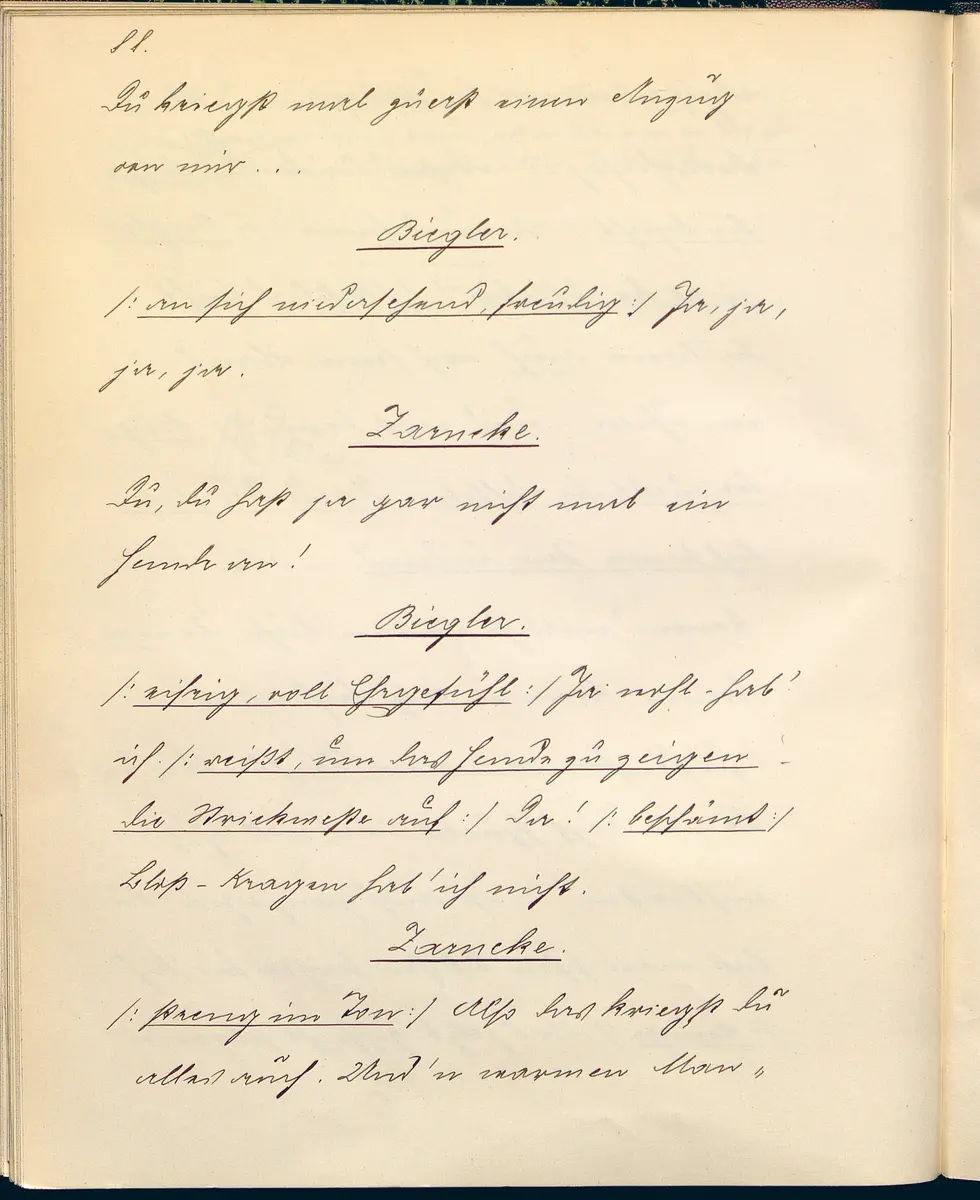 88.
Du kriegst mal zuerst einen Anzug
von mir...
Biegler.
/: an sich niedersehend, freudig :/ Ja, ja,
ja, ja.
Zarncke.
Du, du hast ja gar nicht mal ein
Hemde an!
Biegler.
/: eifrig, voll Ehrgefühl :/ Ja wohl - hab'
ich. /: reißt, um das Hemde zu zeigen
die Strickweste auf :/ Da! /: beschämt :/
Blos - Kragen hab' ich nicht.
Zarncke.
/: streng im Ton :/ Also das kriegst du
alles auch. Und 'n warmen Man "